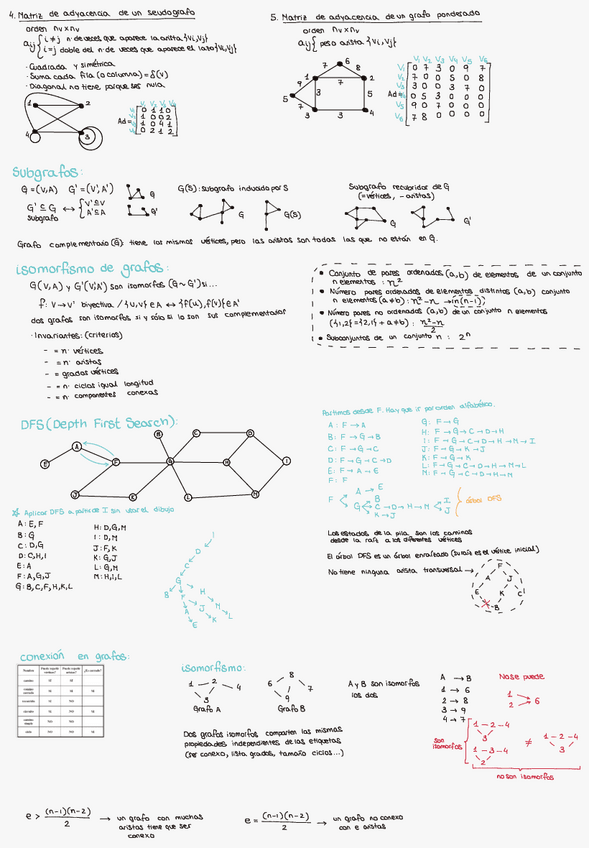 4. Matriz de adyacencia de un seudografo
orden nv x nv
aij { i ≠ j nº de veces que aparece la arista {Vi, Vj}
i = j doble del nº de veces que aparece el lazo {Vi, Vj}
· Cuadrada y simétrica
· Suma cada fila (o columna) = δ(v)
· Diagonal no tiene porque ser nula
1
2
3
4
V1 V2 V3 V4
Ad =
0 1 1 0
1 0 0 2
1 0 4 1
0 2 1 2
5. Matriz de adyacencia de un grafo ponderado
orden nv x nv
aij { peso arista {Vi, Vj}
V1 V2 V3 V4 V5 V6
V1 0 7 3 0 9 7
V2 7 0 0 5 0 8
V3 3 0 0 3 7 0
Ad = V4 0 5 3 0 0 0
V5 9 0 7 0 0 0
V6 7 8 0 0 0 0
Subgrafos:
G = (V, A) G' = (V', A')
G' ⊆ G ↔ { V' ⊆ V
A' ⊆ A
subgrafo
G
G'
G(S): subgrafo inducido por S
G
G(S)
Subgrafo recubridor de G
(= vértices, - aristas)
G
G'
Grafo complementario (G): tiene los mismos vértices, pero las aristas son todas las que no están en G.
isomorfismo de grafos:
G(V, A) y G'(V', A') son isomorfos (G ~ G') si...
f: V → V' biyectiva / {u, v} ∈ A ↔ {f(u), f(v)} ∈ A'
dos grafos son isomorfos si y sólo si lo son sus complementarios
· Invariantes: (criterios)
- = nº vértices
- = nº aristas
- = grados vértices
- = nº ciclos igual longitud
- = nº componentes conexas
• Conjunto de pares ordenados (a, b) de elementos de un conjunto
n elementos: n²
• Número pares ordenados de elementos distintos (a, b) conjunto
n elementos (a ≠ b): n² - n → n(n-1)
• Número pares no ordenados (a, b) de un conjunto n elementos
({1,2} = {2,1} + a ≠ b): n²-n / 2
• Subconjuntos de un conjunto n: 2ⁿ
DFS (Depth First Search):
☆ Aplicar DFS a partir de I sin usar el dibujo
A: E, F
B: G
C: D, G
D: C, H, I
E: A
F: A, G, J
G: B, C, F, H, K, L
H: D, G, M
I: D, M
J: F, K
K: G, J
L: G, M
M: H, I, L
Partimos desde F. Hay que ir por orden alfabético.
A: F → A
B: F → G → B
C: F → G → C
D: F → G → C → D
E: F → A → E
F: F
G: F → G
H: F → G → C → D → H
I: F → G → C → D → H → M → I
J: F → G → K → J
K: F → G → K
L: F → G → C → D → H → M → L
M: F → G → C → D → H → M
F
A → E
G
B
C → D → H → M
I
L
K → J
árbol DFS
Los estados de la pila son los caminos
desde la raíz a los diferentes vértices
El árbol DFS es un árbol enraizado (su raíz es el vértice inicial)
No tiene ninguna arista transversal →
conexión en grafos:
isomorfismo:
1 2 4
3
Grafo A
6 8 7
9
Grafo B
A y B son isomorfos
los dos
A → B
1 → 6
2 → 8
3 → 9
4 → 7
No se puede
1
2 → 6
son
isomorfos
1 - 2 - 4
3
1 - 3 - 4
2
≠
1 - 2 - 4
3
no son isomorfos
Dos grafos isomorfos comparten las mismas
propiedades independientes de las etiquetas
(ser conexo, lista grados, tamaño ciclos...)
e > (n-1)(n-2) / 2 → un grafo con muchas
aristas tiene que ser
conexo
e = (n-1)(n-2) / 2 → un grafo no conexo
con e aristas